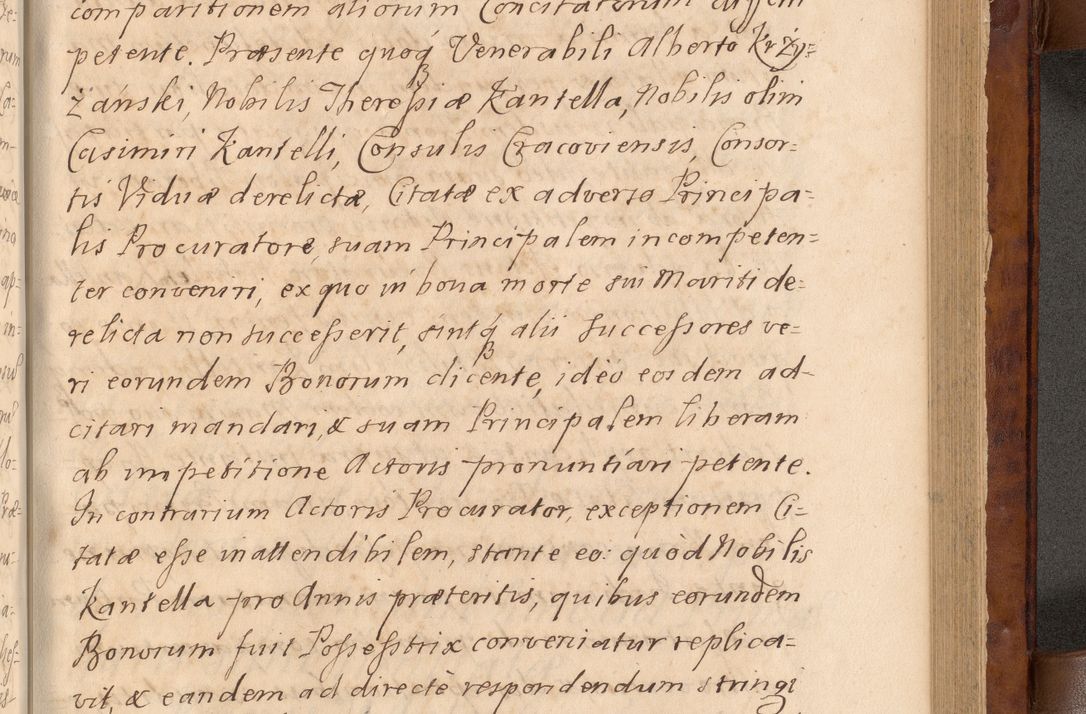 comparitionem aliorum Concitatorum
petente. Præsente quoq́ Venerabili Alberto Krzy=
żański, Nobilis Theressiæ Kantella, Nobilis olim
Casimiri Kantelli, Consulis Cracoviensis, Consor=
tis Viduæ derelictæ, Citatæ ex adverso Principa=
lis Procuratore, suam Principalem incompeten=
ter conveniri, ex quo in bona morte sui Mariti de=
relicta non successerit, sintq́ alii Successores ve=
ri eorundem Bonorum dicente, ideo eosdem ad=
citari mandari, & suam Principalem liberam
ab impetitione Actoris pronuntiari petente.
In contrarium Actoris Procurator, exceptionem Ci=
tatæ esse inattendibilem, stante eo: quòd Nobilis
Kantella pro Annis præteritis, quibus eorundem
Bonorum fuit Possesstrix conveniatur replica=
vit, & eandem ad directè respondendum stringi